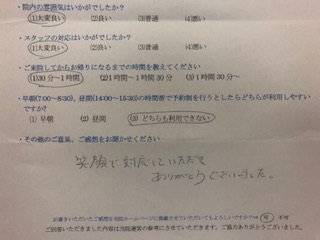 ・院内の雰囲気はいかがでしたか?
(1)大変良い (2)良い (3)普通 (4)悪い
・スタッフの対応はいかがでしたか?
(1)大変良い (2)良い (3)普通 (4)悪い
・ご来院してからお帰りになるまでの時間を教えてください
(1)30分～1時間 (2)1時間～1時間30分 (3)1時間30分～
・早朝(7:00～8:30)、昼間(14:00～15:30)の時間帯で予約制を行うとしたらどちらが利用しやすい
ですか?
(1) 早朝 (2) 昼間 (3) どちらも利用できない
・その他のご意見、ご感想をお聞かせください
笑顔で対応していただき
ありがとうございました。
お書きいただいたご感想を当院ホームページに掲載させていただいてもよろしいですか? 可 不可
ご回答いただきました内容は当院運営の参考にさせていただきます。ご協力ありがとうございました。